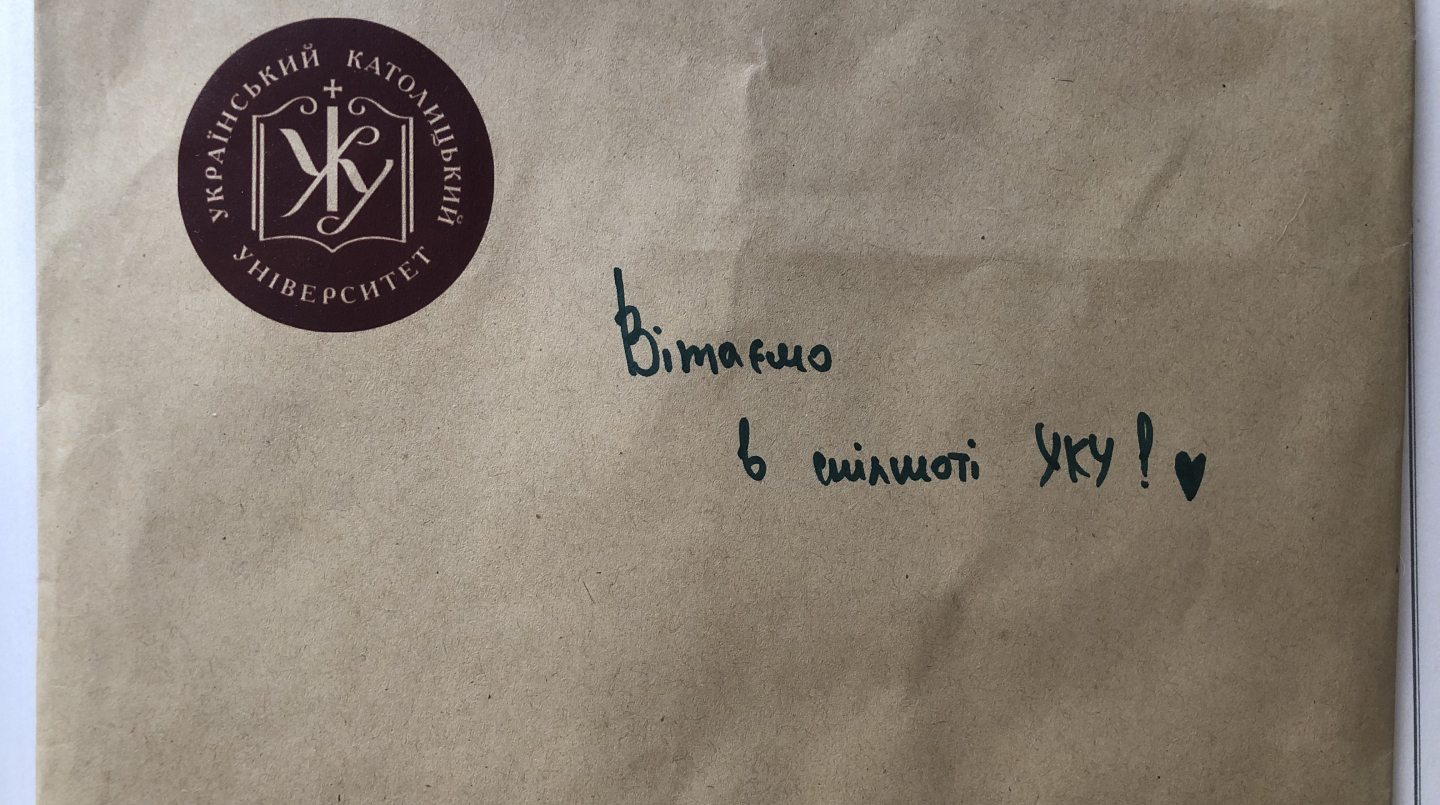 УКРАЇНСЬКИЙ КАТОЛИЦЬКИЙ
УКУ
УНІВЕРСИТЕТ
Вітаємо
в спілноті УКУ!